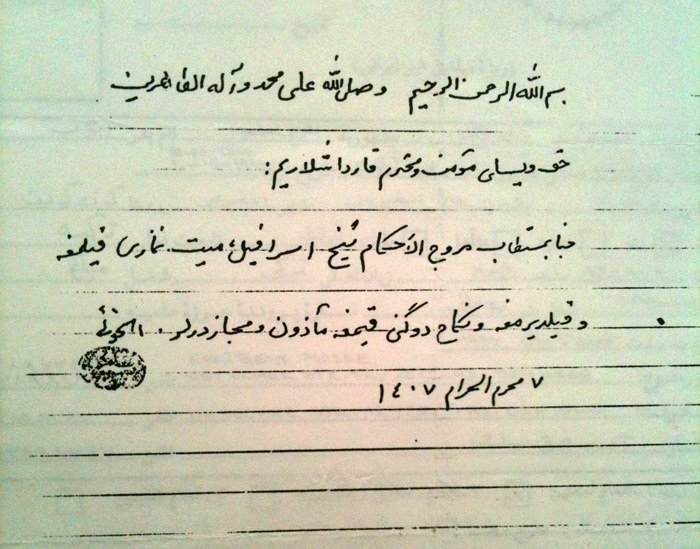 بسم الله الرحمن الرحیم وصلی الله علی محمد وآله الطاهرین
حق و یسای مؤمن ومحترم قارداشلاریم:
جنابمستطاب مروج الأحکام شیخ اسرافیل، میت نمازی قیلمغه
و قیلدیرمغه و نکاح دوگنی قیمغه مأذون و مجازدرلر. الخوئی
۷ محرم الحرام ۱۴۰۷